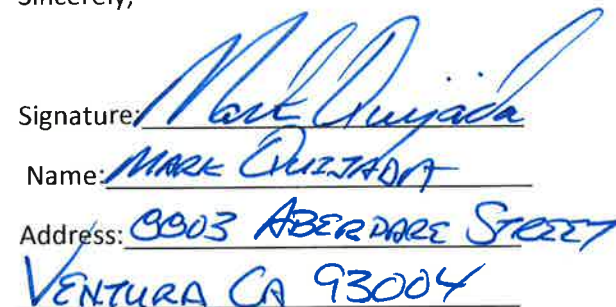 Sincerely,
Signature: Mark Quijada
Name: MARK QUIJADA
Address: 8803 ABERDARE STREET
VENTURA CA 93004